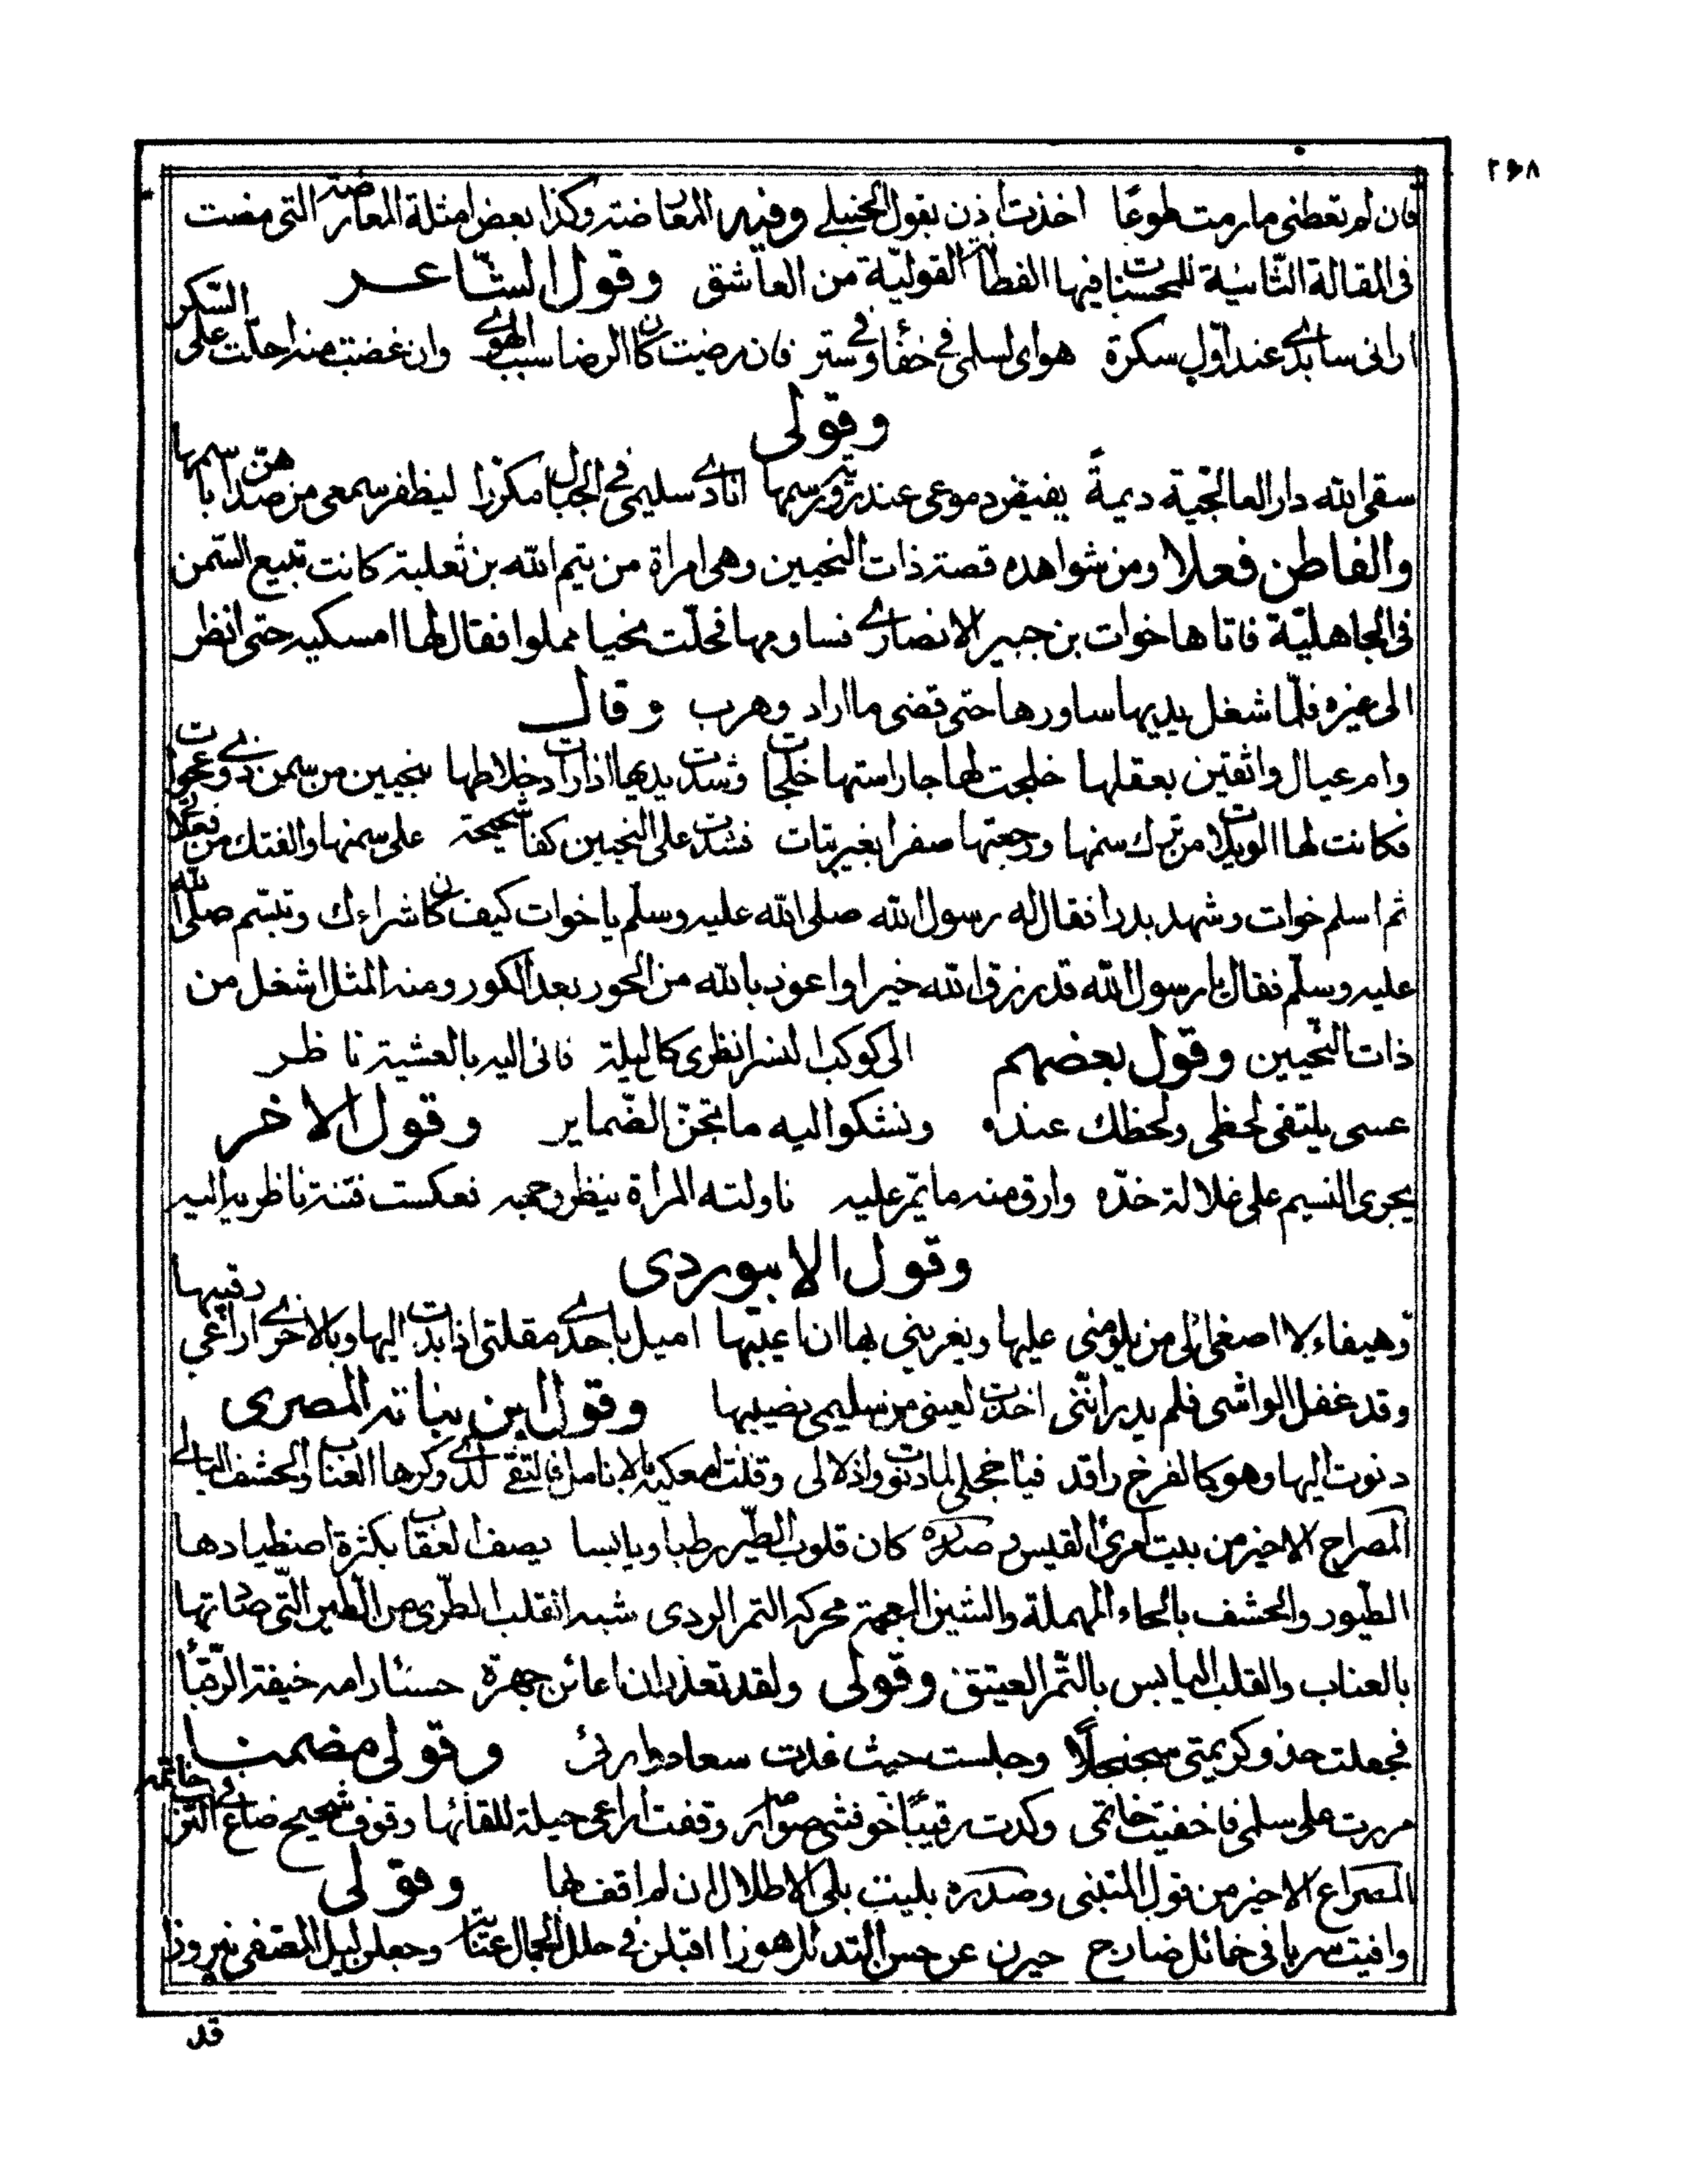 ٢٦٨
فان لم تعطنى ما رمت طوعًا اخذت اذن بقول الحنبلے وفيه المعارضة وكذا بعض امثلة المعارضة التى مضت
فى المقالة الثّانية للمحسنات فيها الفطانة القوليّة من العاشق وقول الشّاعر
ارانى سابدے عند اوّل سكرة هواى لسلمى فے خفاء وفے ستر فان رضيت كان الرضا سبب الهوے وان غضبت منه احلت على السّكر
وقولى
سقى الله دار العالجيّة ديمةً يفيض دموعى عند تزوير رسمها انادے سليمى فے الجبال مكرّرا ليظفر سمعى من صداهنّ باسمها
والفاطن فعلا ومن شواهده قصة ذات النحيين وهى امراة من تيم الله بن ثعلبة كانت تبيع السّمن
فى الجاهليّة فاتاها خوات بن جبير الانصارے فساومها فحلّت نحيا مملوا فقال لها امسكيه حتى انظر
الى غيره فلمّا شغل يديها ساورها حتى قضى ما اراد وهرب وقال
وام عيال واثقين بعقلها خلجت لها جار استها خلجات وشدت يديها اذ اردت خلاطها بنحيين من سمن ذوے عجرات
فكانت لها الويلات من ترك سمنها ورجعتها صفرا بغير بتات فشدت على النحيين كفا شحيحة على سمنها والفتك من فعلاتى
ثم اسلم خوات وشهد بدرا فقال له رسول الله صلى الله عليه وسلّم يا خوات كيف كان شراءك وتبسّم صلى الله
عليه وسلّم فقال يا رسول الله قد رزق الله خيرا واعوذ بالله من الحور بعد الكور ومنه المثل اشغل من
ذات النّحيين وقول بعضهم الى كوكب النسر انظرى كل ليلة فانى اليه بالعشية ناظر
عسى يلتقى لحظى ولحظك عنده ونشكوا اليه ما تجنّ الضّماير وقول الاخر
يجرى النسيم على غلالة خدّه وارق منه ما يمرّ عليه ناولته المراة ينظر وجهه فعكست فتنة ناظريه اليه
وقول الابيوردى
وهيفاء لا اصغى الى من يلومنى عليها ويغرينى بها ان اعيبها اميل باحدے مقلتى اذا بدت اليها وبالاخرے اراعى رقيبها
وقد غفل الواشى فلم يدر انّنى اخذت لعينى من سليمى نصيبها وقول ابن نباته المصرى
دنوت اليها وهو كالفرخ راقد فيا خجلى لما دنوت واذلالى وقلت امعكيه بالانامل فالتقے لدے وكرها العناب والحشف البالے
المصراع الاخير من بيت امرئ القيس وصدره كان قلوب الطّير رطبا ويابسا يصف العقاب بكثرة اصطيادها
الطّيور والحشف بالحاء المهملة والشين المعجمة محركه التمر الردى شبه القلب الطّرى من الطير الّتى صادتها
بالعناب والقلب اليابس بالتّمر العيتق وقولى ولقد تعذر ان اعائن جهرة حسناء رامه خيفة الرّقباء
فجعلت حذو كريمتى سجنجلًا وجلست حيث غدت سعاد ورائى وقولى مضمنا
مررت على سلمى فاخفيت خاتمى وكدت رقيبًا خوفشى صوارم وقفت اراعى حيلة للقائها وقوف شحيح ضاع فے الترب خاتمه
المصراع الاخير من قول المتنبى وصدره بليت بلى الاطلال ان لم اقف بها وقولى
وافيت سربا فى خمائل ضارج حيرن عن حسن التدلل هوزا اقبلن فے حلل الجمال وجعلن ليل نيروزا
قد